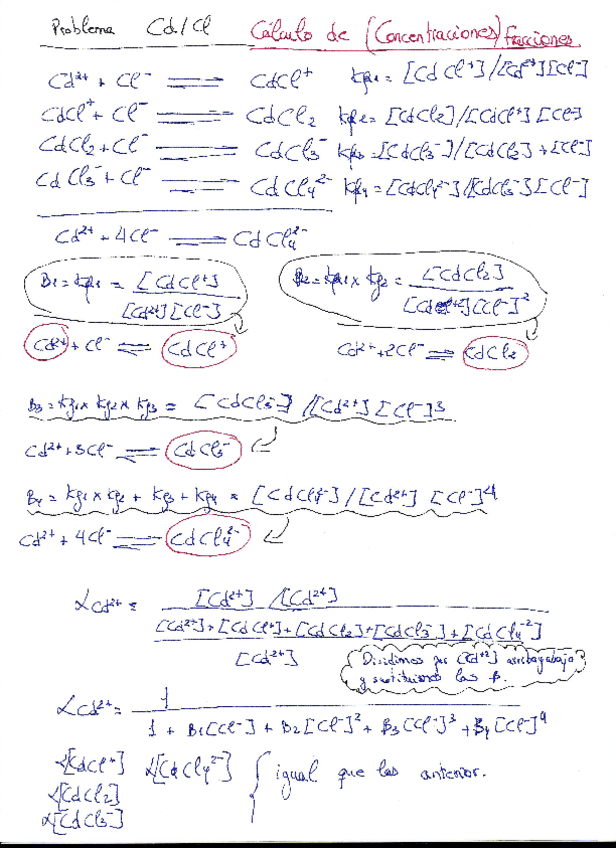 Problema Cd/Cl Cálculo de (Concentraciones) fracciones
Cd²⁺ + Cl⁻ ⇌ CdCl⁺ Kf1 = [CdCl⁺]/[Cd²⁺][Cl⁻]
CdCl⁺ + Cl⁻ ⇌ CdCl₂ Kf2 = [CdCl₂]/[CdCl⁺][Cl⁻]
CdCl₂ + Cl⁻ ⇌ CdCl₃⁻ Kf3 = [CdCl₃⁻]/[CdCl₂]+[Cl⁻]
CdCl₃⁻ + Cl⁻ ⇌ CdCl₄²⁻ Kf4 = [CdCl₄²⁻]/[CdCl₃⁻][Cl⁻]
Cd²⁺ + 4Cl⁻ ⇌ CdCl₄²⁻
B1 = Kf1 = [CdCl⁺] / [Cd²⁺][Cl⁻] B2 = Kf1 x Kf2 = [CdCl₂] / [Cd²⁺][Cl⁻]²
Cd²⁺ + Cl⁻ ⇌ CdCl⁺ Cd²⁺ + 2Cl⁻ ⇌ CdCl₂
B3 = Kf1 x Kf2 x Kf3 = [CdCl₃⁻] / [Cd²⁺][Cl⁻]³
Cd²⁺ + 3Cl⁻ ⇌ CdCl₃⁻
B4 = Kf1 x Kf2 + Kf3 + Kf4 = [CdCl₄²⁻] / [Cd²⁺] [Cl⁻]⁴
Cd²⁺ + 4Cl⁻ ⇌ CdCl₄²⁻
αCd²⁺ = [Cd²⁺] / [Cd²⁺]
[Cd²⁺]+[CdCl⁺]+[CdCl₂]+[CdCl₃⁻]+[CdCl₄⁻²]
[Cd²⁺]
Dividimos por [Cd⁺²] arriba y abajo
y sustituimos las β.
αCd²⁺ = 1
1 + B1[Cl⁻] + B2[Cl⁻]² + B3[Cl⁻]³ + B4[Cl⁻]⁴
α[CdCl⁺] α[CdCl₄²⁻] { igual que las anterior.
α[CdCl₂]
α[CdCl₃⁻]